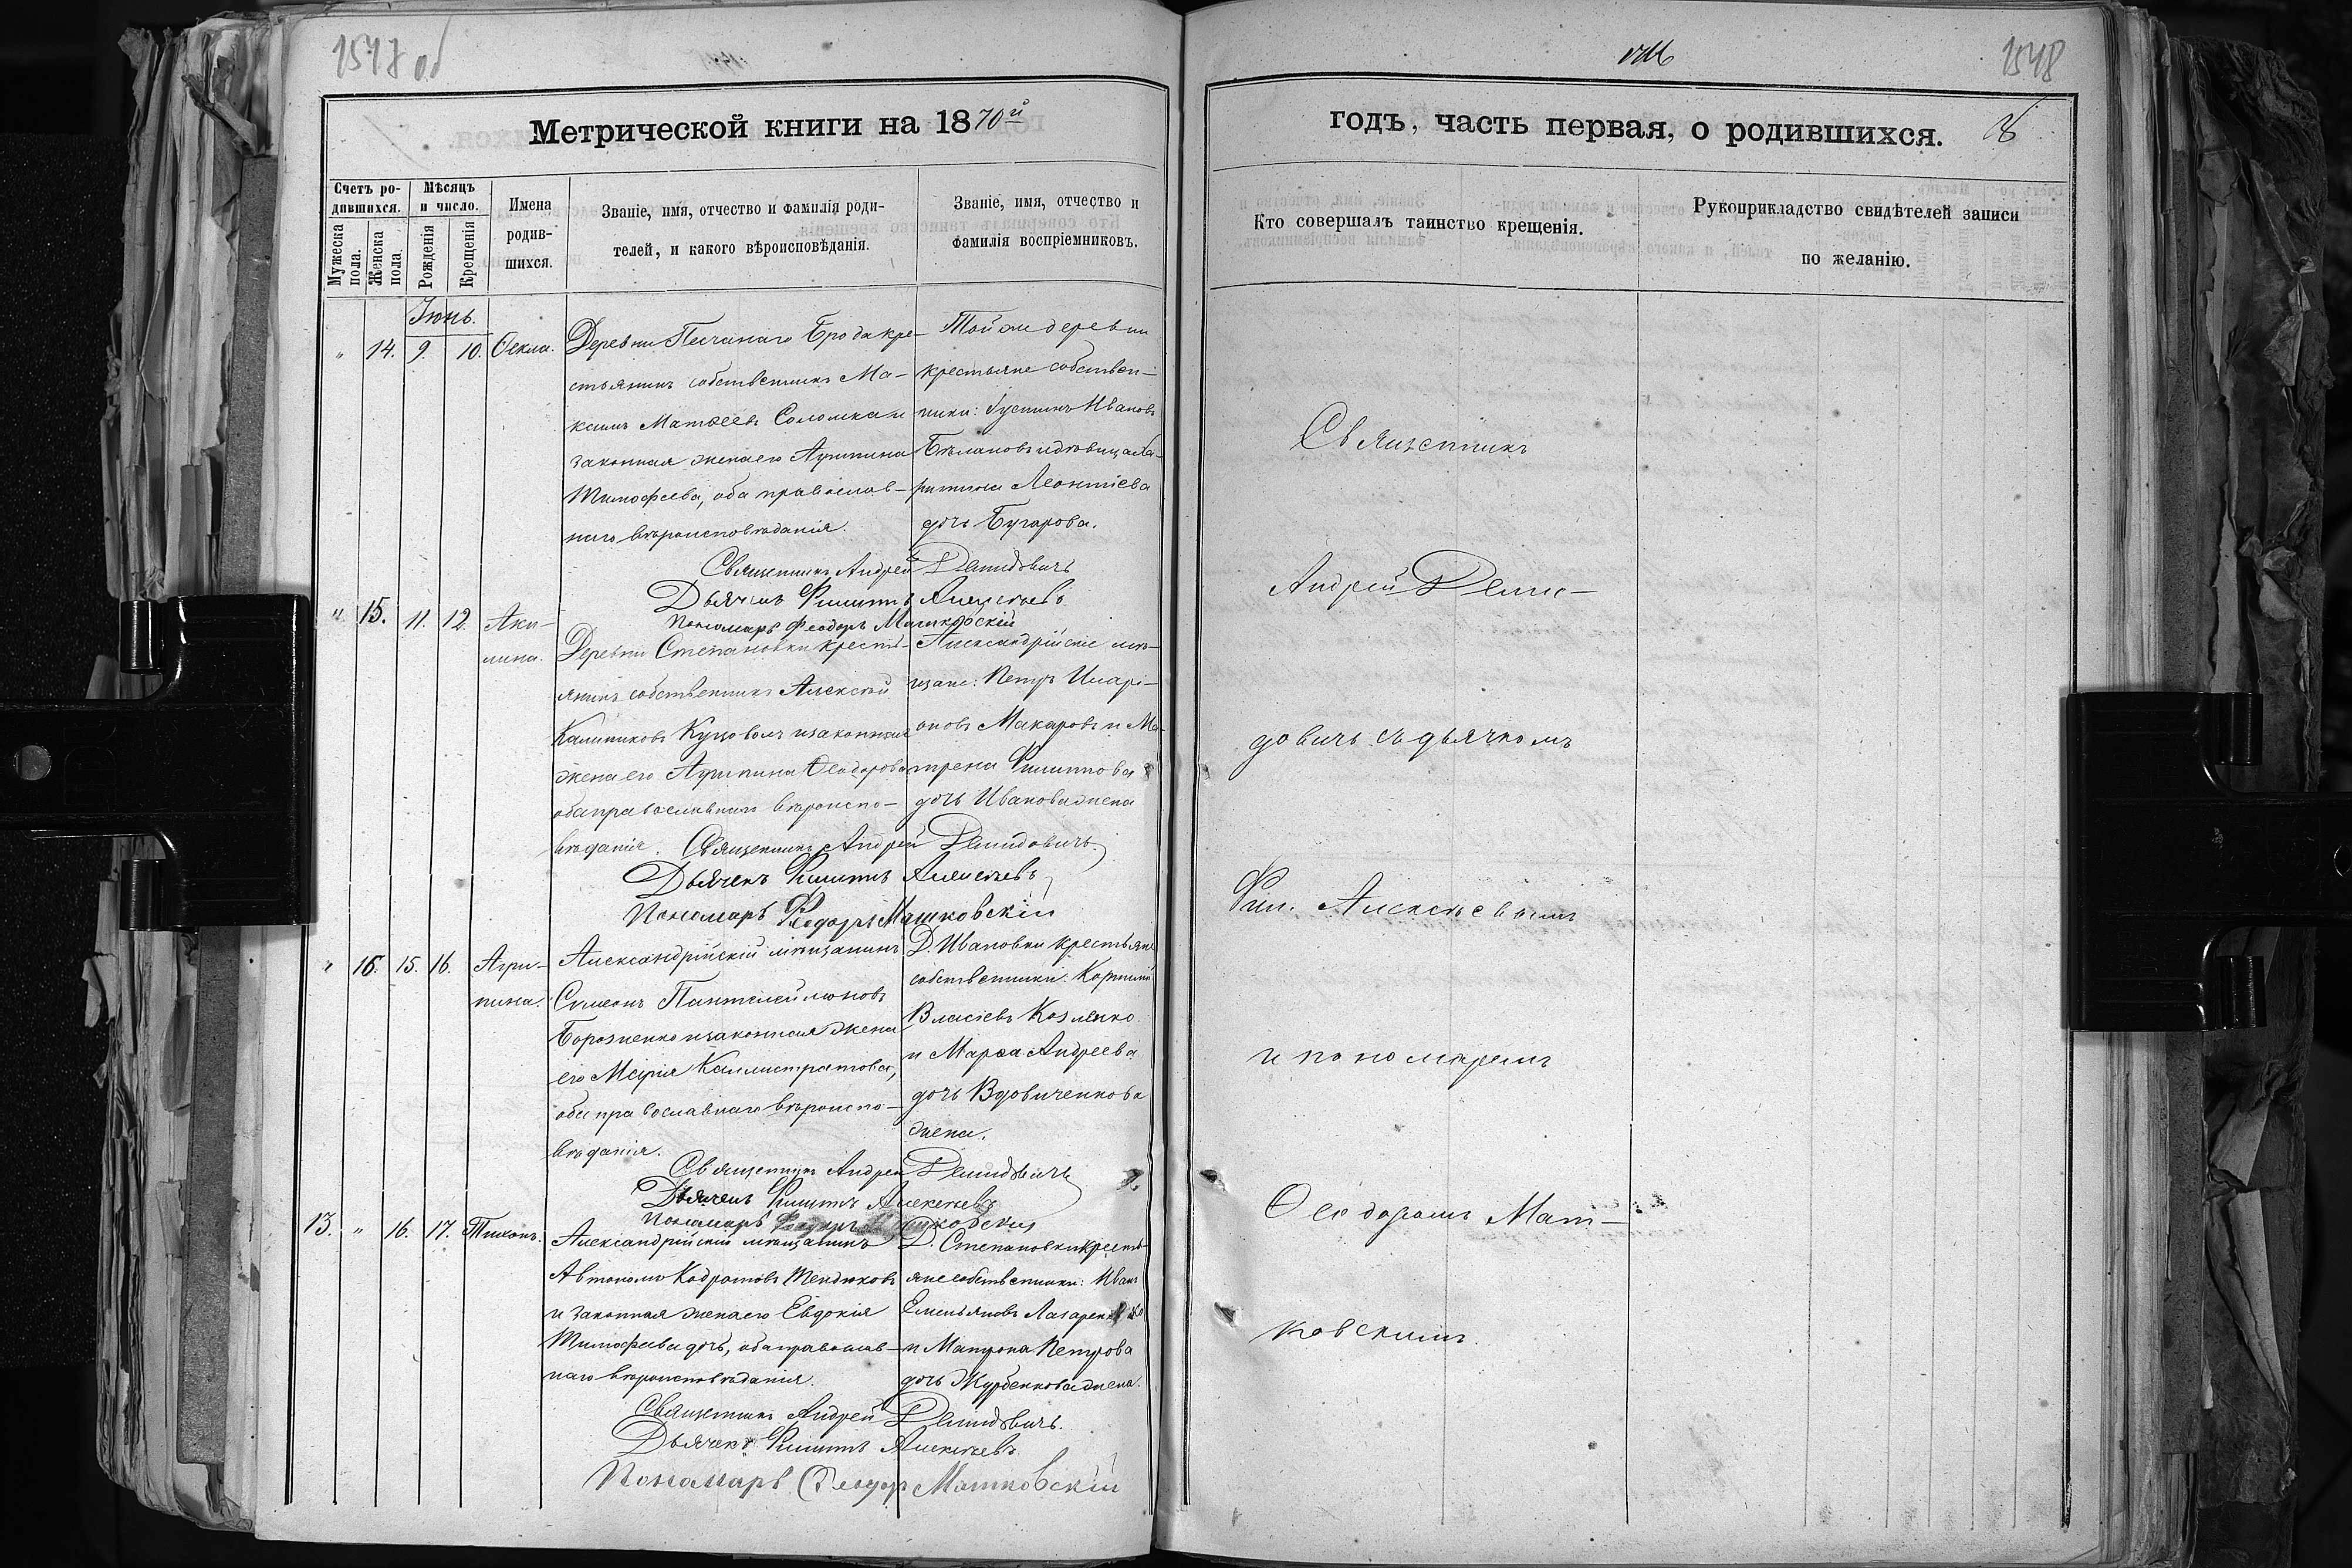 1547 об
1548
Метрической книги на 1870й
годъ, часть первая, о родившихся.
Счетъ родившихся.
Мужеска пола.
Женска пола.
Мѣсяцъ и число.
Рожденія
Крещенія
Имена родившихся.
Званіе, имя, отчество и фамилія родителей, и какого вѣроисповѣданія.
Званіе, имя, отчество и фамилія воспріемниковъ.
Кто совершалъ таинство крещенія.
Рукоприкладство свидѣтелей записи по желанію.
Іюнь.
" 14. 9. 10. Ѳекла.
Деревни Песчанаго Брода кре-
стьянинъ собственникъ Ма-
ксимъ Матѳеевъ Соломка и
законная жена его Агрипина
Тимофеева, оба православ-
наго вѣроисповѣданія.
Той же деревни
крестьяне собствен-
ники: Іустинъ Ивановъ
Леонтіева
дочь Бугарова.
Священникъ Андрей Демидовичъ
Дьячекъ Филиппъ Алексѣевъ
Пономарь Феодоръ Машковскій
" 15. 11. 12. Аки-
лина.
Деревни Степановки кресть-
янинъ собственникъ Алексѣй
Калиниковъ и законная
жена его Агрипина Ѳеодорова
оба православнаго вѣроиспо-
вѣданія.
Александрійскіе мѣ-
щане: Петръ Иларі-
оновъ Макаровъ и Ма-
трена Филиппова
дочь Иванова жена
Священникъ Андрей Демидовичъ
Дьячекъ Филиппъ Алексѣевъ
Пономарь Ѳеодоръ Машковскій
" 16. 15. 16. Агри-
пина.
Александрійскій мѣщанинъ
Симеонъ Пантелеймоновъ
Борозненко и законная жена
его Марія Каллистратова,
оба православнаго вѣроиспо-
вѣданія.
Д. Ивановки крестьяне
собственники: Корнилій
Власіевъ Козленко
и Марѳа Андреева
дочь Вдовиченкова
жена.
Священникъ Андрей Демидовичъ
Дьячекъ Филиппъ Алексѣевъ
Пономарь
13. " 16. 17. Тихонъ.
Александрійскій мѣщанинъ
Автономъ Кодратовъ Мендюковъ
и законная жена его Евдокія
Тимофеева дочь, оба православ-
наго вѣроисповѣданія.
Д. Степановки кресть-
яне собственники: Иванъ
Емельяновъ Лазаренко
и Матрона Петрова
дочь Журбенкова жена.
Священникъ Андрей Демидовичъ.
Дьячекъ Филиппъ Алексѣевъ
Пономарь Ѳеодоръ Машковскій
Священникъ
Андрей Деми-
довичъ съ дьячкомъ
Фил. Алексѣевымъ
и пономаремъ
Ѳеодоромъ Маш-
ковскимъ.